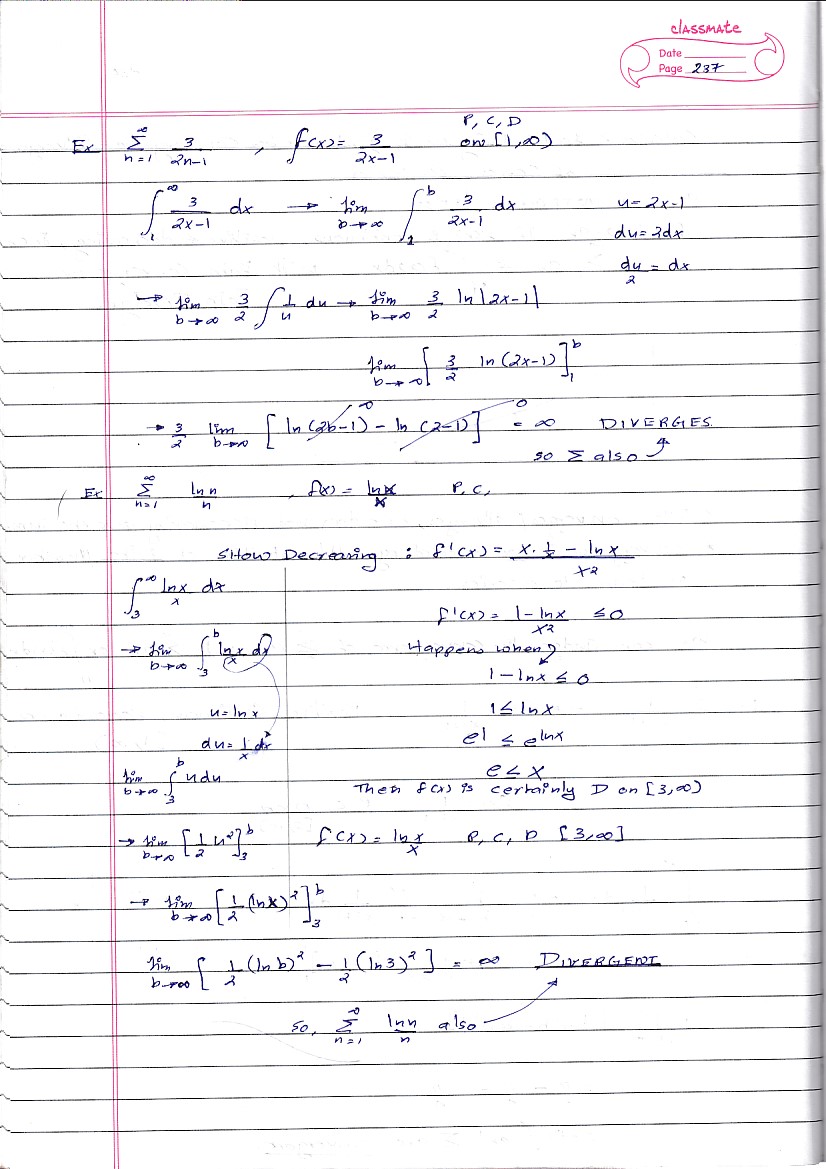 classmate
Date
Page 237
P, C, D
Ex ∞ Σ n=1 3/(2n-1) , f(x) = 3/(2x-1) on [1,∞)
∫_1^∞ 3/(2x-1) dx → lim b→∞ ∫_1^b 3/(2x-1) dx u = 2x-1
du = 2dx
du/2 = dx
→ lim b→∞ 3/2 ∫ 1/u du → lim b→∞ 3/2 ln|2x-1|
lim b→∞ [ 3/2 ln(2x-1) ]_1^b
→ 3/2 lim b→∞ [ ln(2b-1)^∞ - ln(2-1)^0 ] = ∞ DIVERGES
so Σ also
Ex ∞ Σ n=1 ln n/n , f(x) = ln x/x P, C,
Show Decreasing : f'(x) = (x · 1/x - ln x)/x²
∫_3^∞ ln x/x dx
f'(x) = (1 - ln x)/x² ≤ 0
→ lim b→∞ ∫_3^b ln x/x dx Happens when?
1 - ln x ≤ 0
u = ln x 1 ≤ ln x
du = 1/x dx e^1 ≤ e^lnx
lim b→∞ ∫_3^b u du e ≤ x
Then f(x) is certainly D on [3,∞)
→ lim b→∞ [ 1/2 u² ]_3^b f(x) = ln x/x P, C, D [3,∞]
→ lim b→∞ [ 1/2 (ln x)² ]_3^b
lim b→∞ [ 1/2 (ln b)² - 1/2 (ln 3)² ] = ∞ DIVERGENT
So, ∞ Σ n=1 ln n/n also